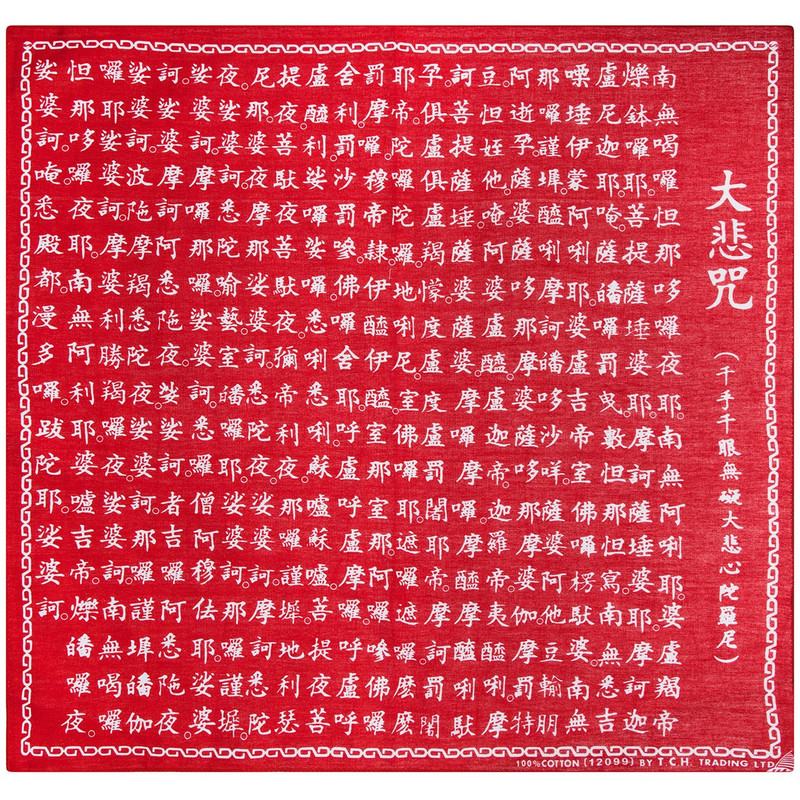 大悲咒
（千手千眼無礙大悲心陀羅尼）
南無喝囉怛那哆囉夜耶。南無阿唎耶。婆盧羯帝
爍鉢囉耶。菩提薩埵婆耶。摩訶薩埵婆耶。摩訶迦
盧尼迦耶。唵。薩皤囉罰曳。數怛那怛寫。南無悉吉
嘌埵伊蒙阿唎耶。婆盧吉帝。室佛囉楞馱婆。南無
那囉謹墀。醯唎摩訶皤哆沙咩。薩婆阿他豆輸朋
阿逝孕。薩婆薩哆那摩婆薩哆那摩婆伽。摩罰特
豆怛姪他。唵。阿婆盧醯。盧迦帝。迦羅帝。夷醯唎。摩
訶菩提薩埵。薩婆薩婆。摩囉摩囉。摩醯摩醯唎馱
孕。俱盧俱盧羯懞。度盧度盧罰闍耶帝。摩訶罰闍
耶帝。陀囉陀囉。地唎尼。室佛囉耶。遮囉遮囉。麼麼
罰摩囉。穆帝隸。伊醯伊醯。室那室那。阿囉嘇佛囉
舍利。罰沙罰嘇。佛囉舍耶。呼盧呼盧摩囉。呼盧呼
盧醯利。娑囉娑囉。悉唎悉唎。蘇嚧蘇嚧。菩提夜菩
提夜。菩馱夜菩馱夜。彌帝利夜。那囉謹墀。地利瑟
尼那。婆夜摩那。娑婆訶。悉陀夜。娑婆訶。摩訶悉陀
夜。娑婆訶。悉陀喻藝。室皤囉耶。娑婆訶。那囉謹墀。
娑婆訶。摩囉那囉。娑婆訶。悉囉僧阿穆佉耶。娑婆
訶。娑婆摩訶阿悉陁夜。娑婆訶。者吉囉阿悉陁夜。
娑婆訶。波陁摩羯悉陀夜。娑婆訶。那囉謹墀皤伽
囉耶。娑婆訶。摩婆利勝羯囉夜。娑婆訶。南無喝囉
怛那哆囉夜耶。南無阿利耶。婆嚧吉帝。爍皤囉夜。
娑婆訶。唵。悉殿都。漫多囉。跋陀耶。娑婆訶。
100% COTTON (12099) BY T.C.H. TRADING LTD